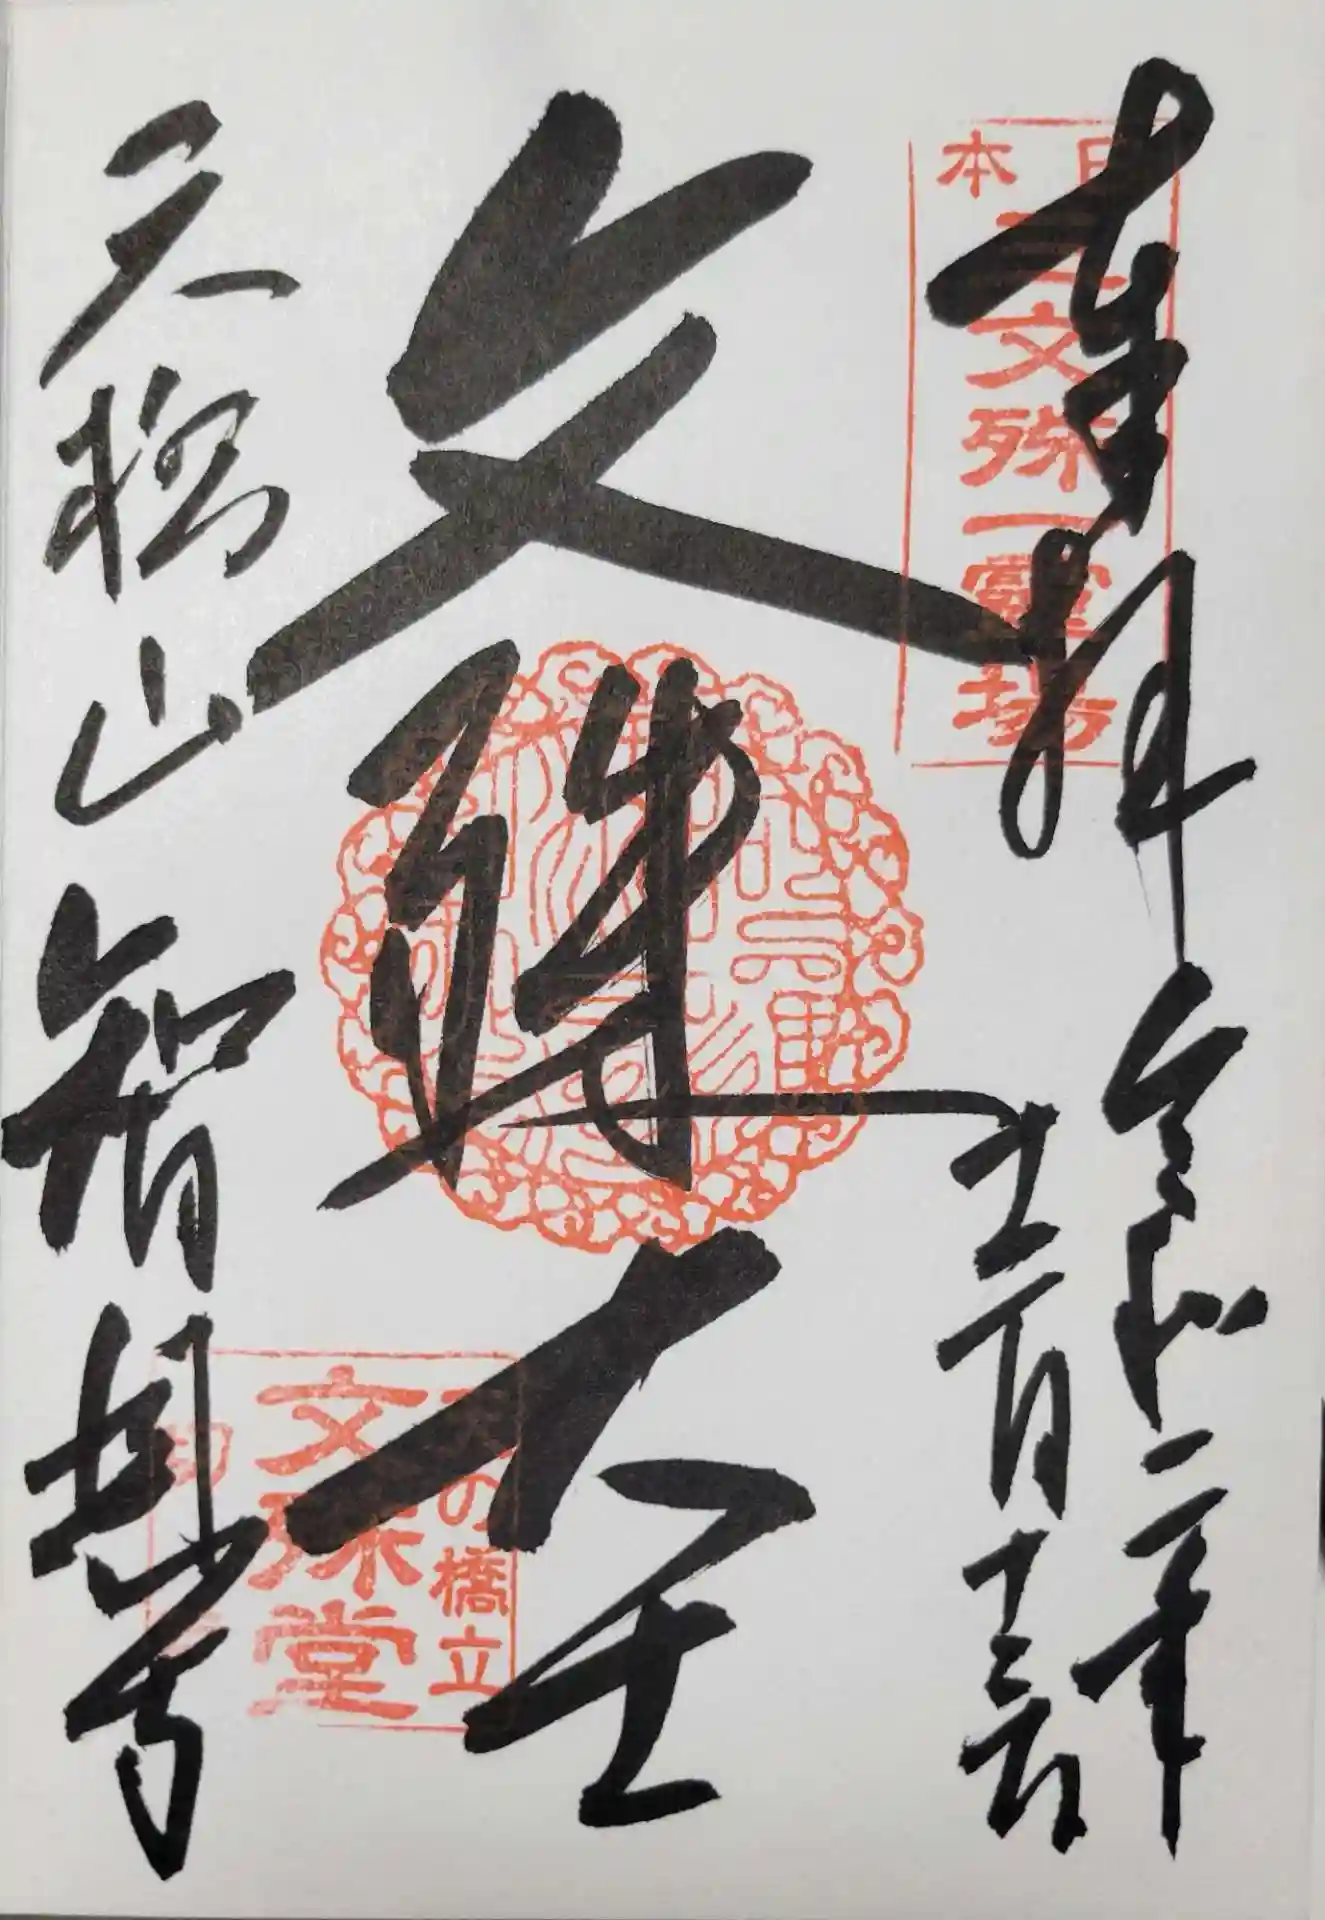 奉拝 令和二年
十二月十三日
文殊大士
天橋山智恩寺
日本
三文殊一霊場
の橋立
文殊堂